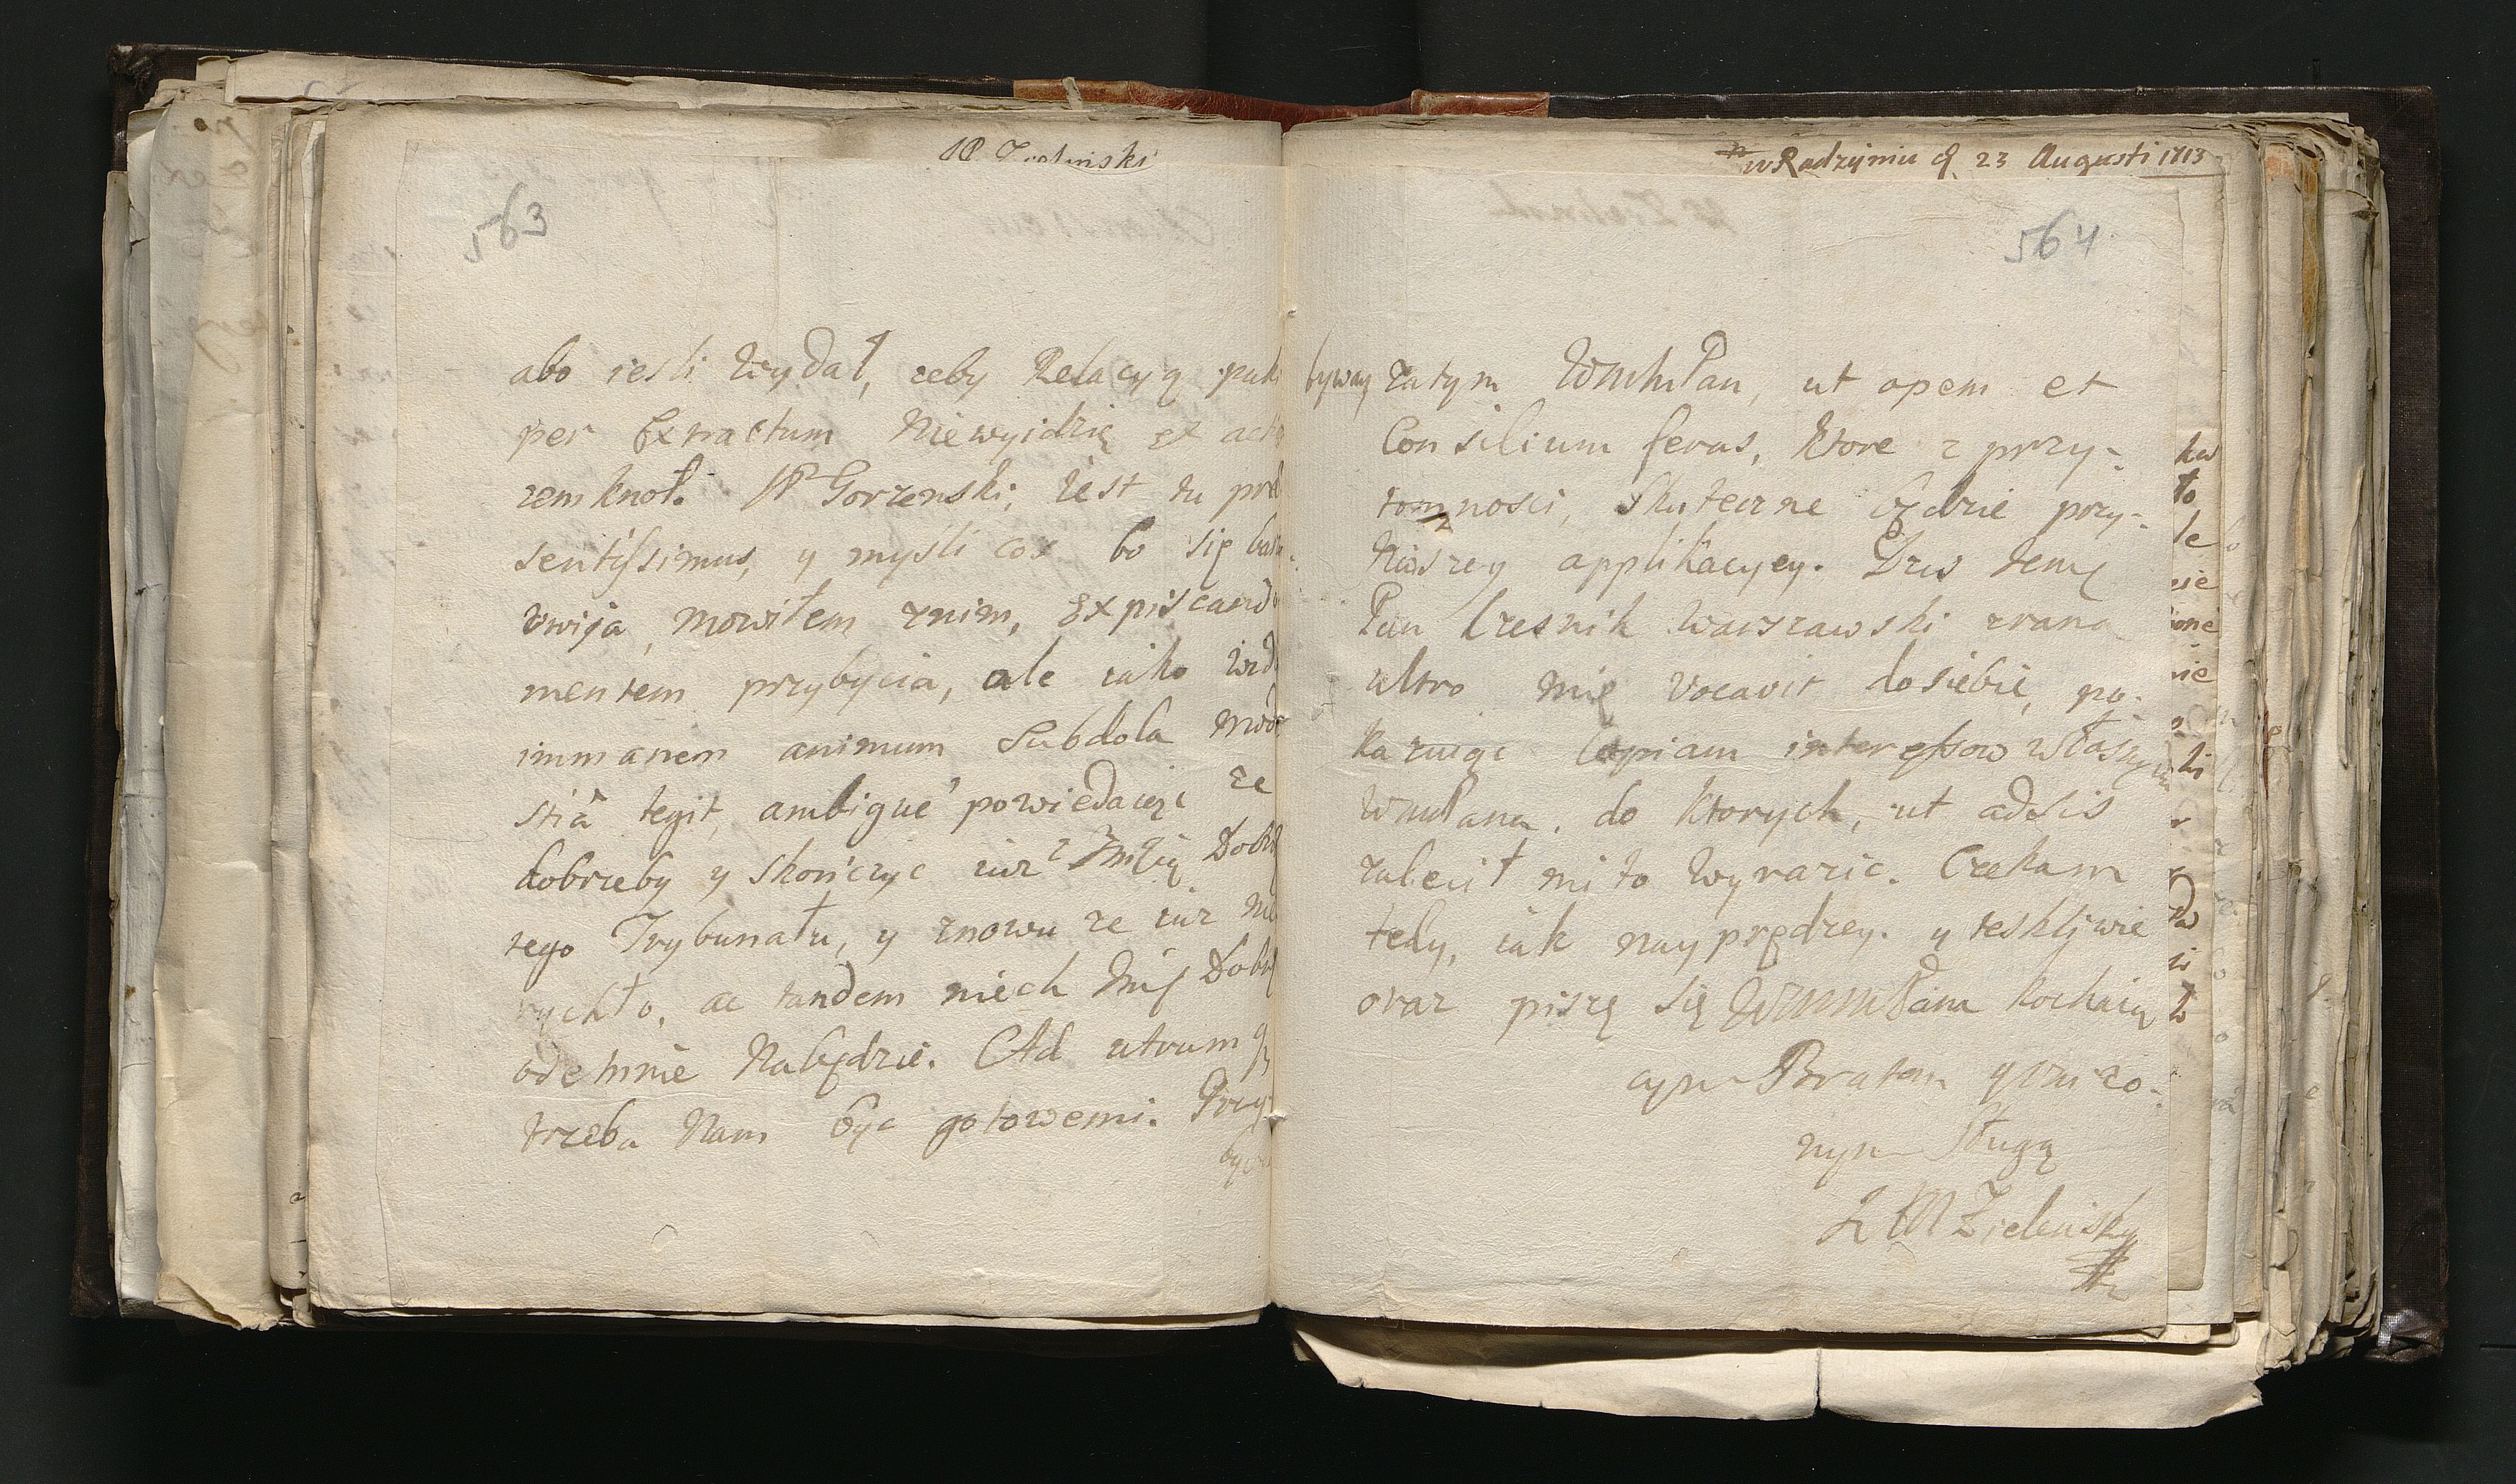 JP Zieliński
563
abo iesli wydał, zeby Relacyą
per Extractum Niewyidzie ex
zemknoł. JP Gorzenski, iest tu prę
sentissimus, y mysli cos bo się
uwiia, mowiłem znim, Expiscand
mentem przybycia, ale iako
immanem animum Subdola mode
stiâ tegit, ambigué powiedaiąc ze
dobrzeby y skończyc iuz
tego Trybunału, y znowu ze iuz
rychło, ac tandem niech
odemnie Nabędzie. Ad utrumq
trzeba Nam byc gotowemi. Przy
byw
w Radzyniu d 23 Augusti 1713
564
byway zatym WmMPan, ut opem et
Consilium feras, ktore z przy-
tomnosci, skuteczne będzie przy-
Naszey applikacyey. Dzis
Pan Czesnik Warszawski zrana
ultro mię vocavit do siebie, po-
kazuiąc Copiam interessow własnych
WmPana, do ktorych, ut adsis
zalecił mi to wyrazic. Czekam
tedy, iak nayprędzey. y teskliwie
oraz piszę się WmmPana kochaią
cym Bratem y unizo-
nym Sługą
Zielinsky